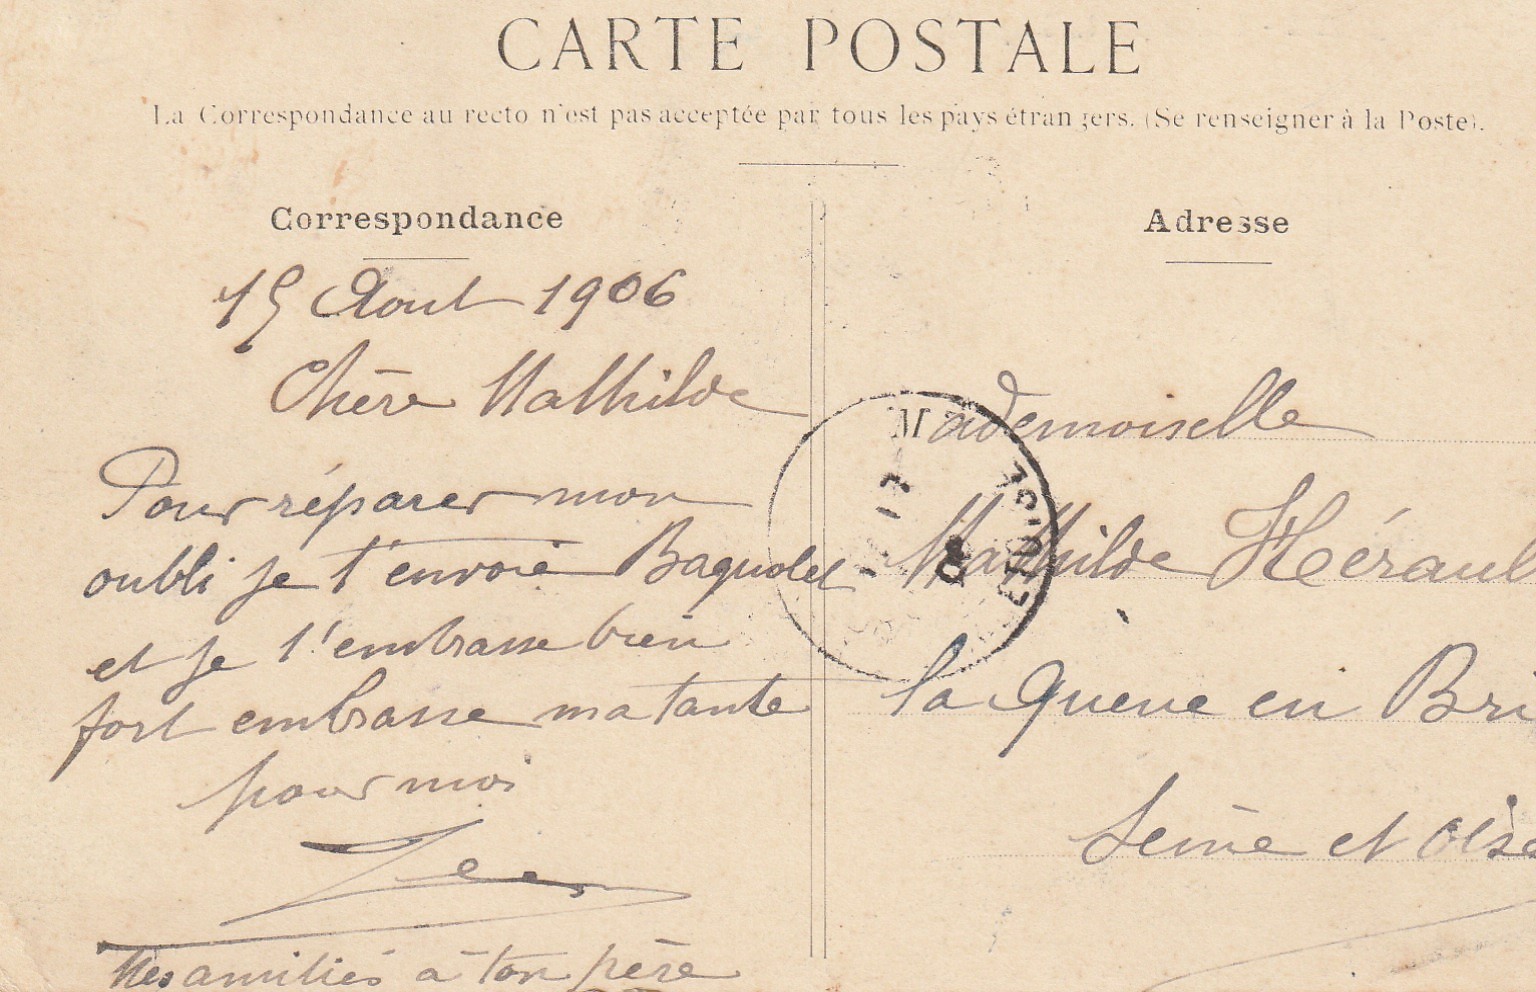 CARTE POSTALE
La Correspondance au recto n'est pas acceptée par tous les pays étrangers. (Se renseigner à la Poste).
Correspondance
15 Aout 1906
Chère Mathilde
Pour réparer mon
oubli je t'envoie Bagnolet
et je t'embrasse bien
fort embrasse ma tante
pour moi
Mes amitiés à ton père
Adresse
Mademoiselle
Mathilde Hérault
la Queue en Bri
Seine et Oise